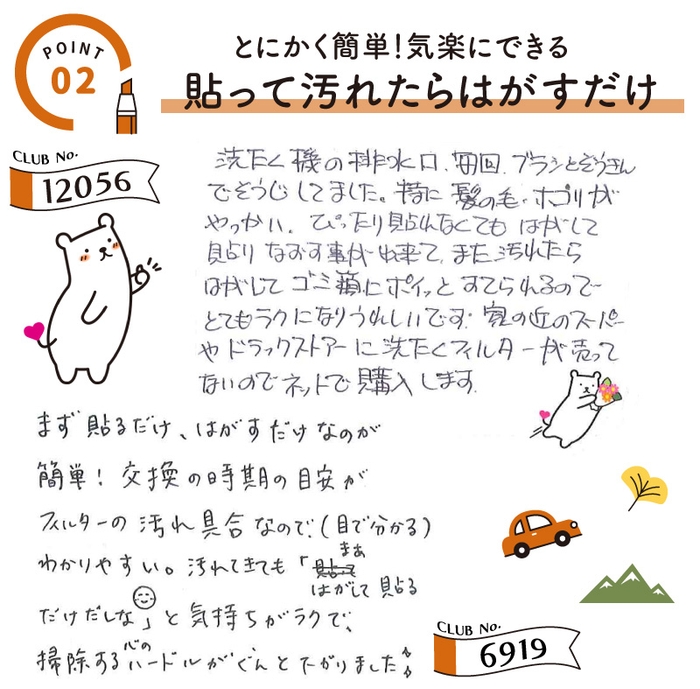 POINT
02
とにかく簡単!気楽にできる
貼って汚れたらはがすだけ
CLUB No.
12056
洗たく機の排水口、毎回、ブラシとぞうきん
でそうじしてました。特に髪の毛・ホコリが
やっかい、ぴったり貼れなくてもはがして
貼りなおす事が出来て、また汚れたら
はがしてゴミ箱にポイッとすてられるので
とてもラクになりうれしいです。家の近のスーパー
やドラックストアーに洗たくフィルターが売って
ないのでネットで購入します。
まず貼るだけ、はがすだけなのが
簡単!交換の時期の目安が
フィルターの汚れ具合なので、(目で分かる)
わかりやすい。汚れてきても「まあ
はがして貼る
だけだしな」と気持ちがラクで、
掃除する心のハードルがぐんと下がりました
CLUB No.
6919